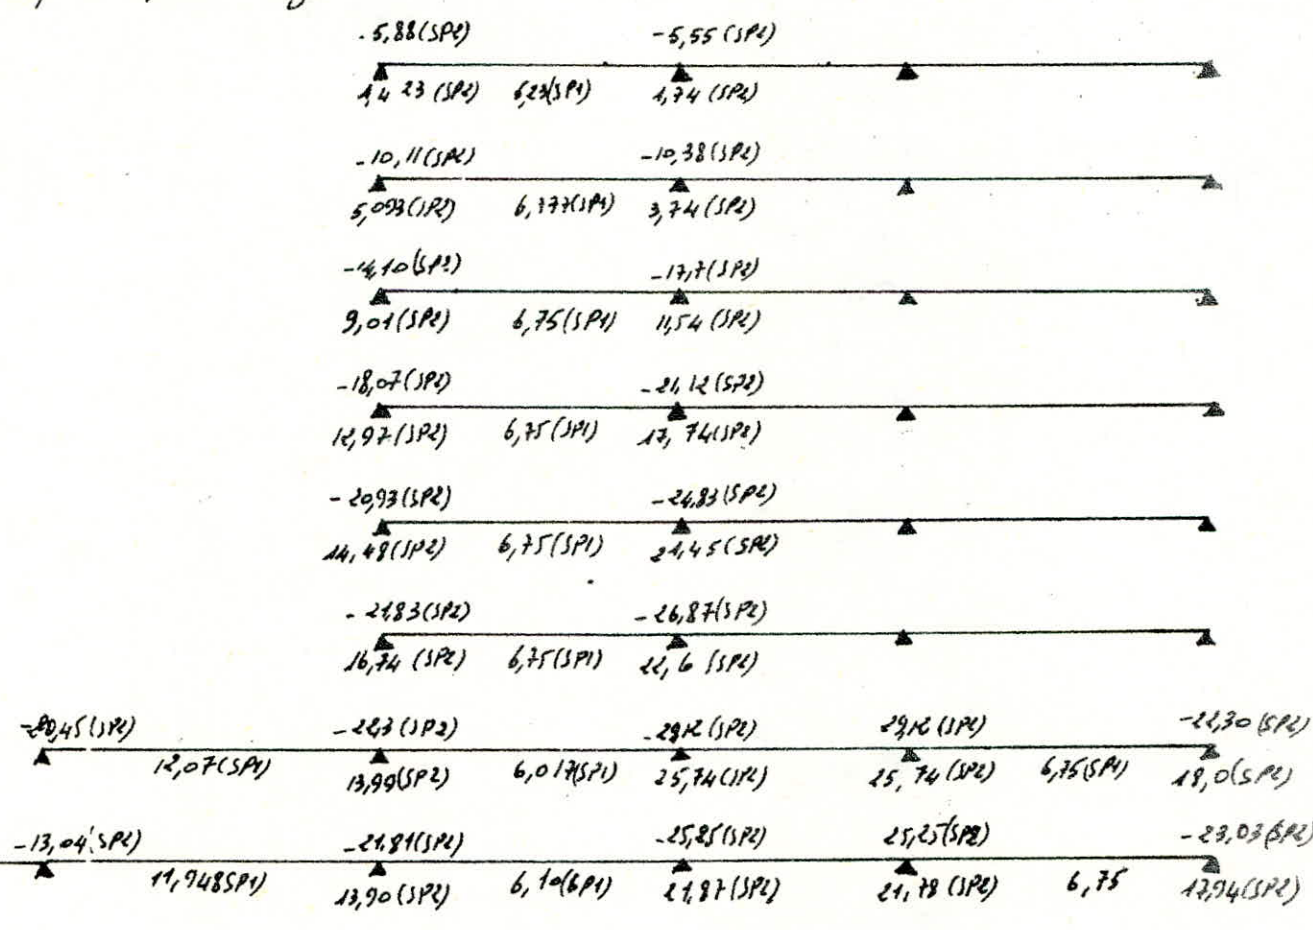 -5,88(SP2) -5,55 (SP2)
1,4 23 (SP2) 6,23(SP1) 1,74 (SP2)
-10,11(SP2) -10,38(SP2)
5,093(SP2) 6,777(SP1) 3,74(SP2)
-14,10(SP2) -17,7(SP2)
9,01(SP2) 6,75(SP1) 11,54 (SP2)
-18,07(SP2) -21,12(SP2)
12,97(SP2) 6,75(SP1) 17, 74(SP2)
-20,93(SP2) -24,83(SP2)
14,48(SP2) 6,75(SP1) 21,45(SP2)
-21,83(SP2) -26,87(SP2)
16,74 (SP2) 6,75(SP1) 22,6 (SP2)
-20,45(SP2) -22,3(SP2) -29,12(SP2) 29,12(SP2) -22,30(SP2)
12,07(SP1) 13,99(SP2) 6,017(SP1) 25,74(SP2) 25, 74(SP2) 6,75(SP1) 18,0(SP2)
-13,04(SP2) -21,81(SP2) -25,25(SP2) 25,25(SP2) -23,03(SP2)
11,948SP1) 13,90(SP2) 6,10(SP1) 21,87(SP2) 21,78(SP2) 6,75 17,94(SP2)